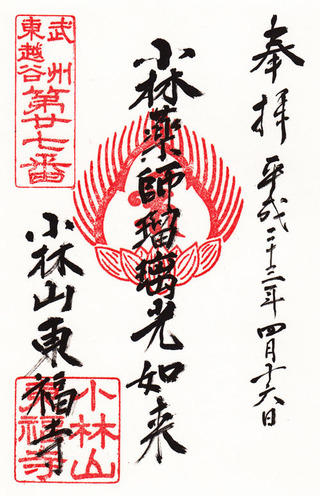 奉拝 平成二十三年四月十六日
小林薬師瑠璃光如来
武州
東越谷
第廿七番
小林山東福寺
小林山
東福寺